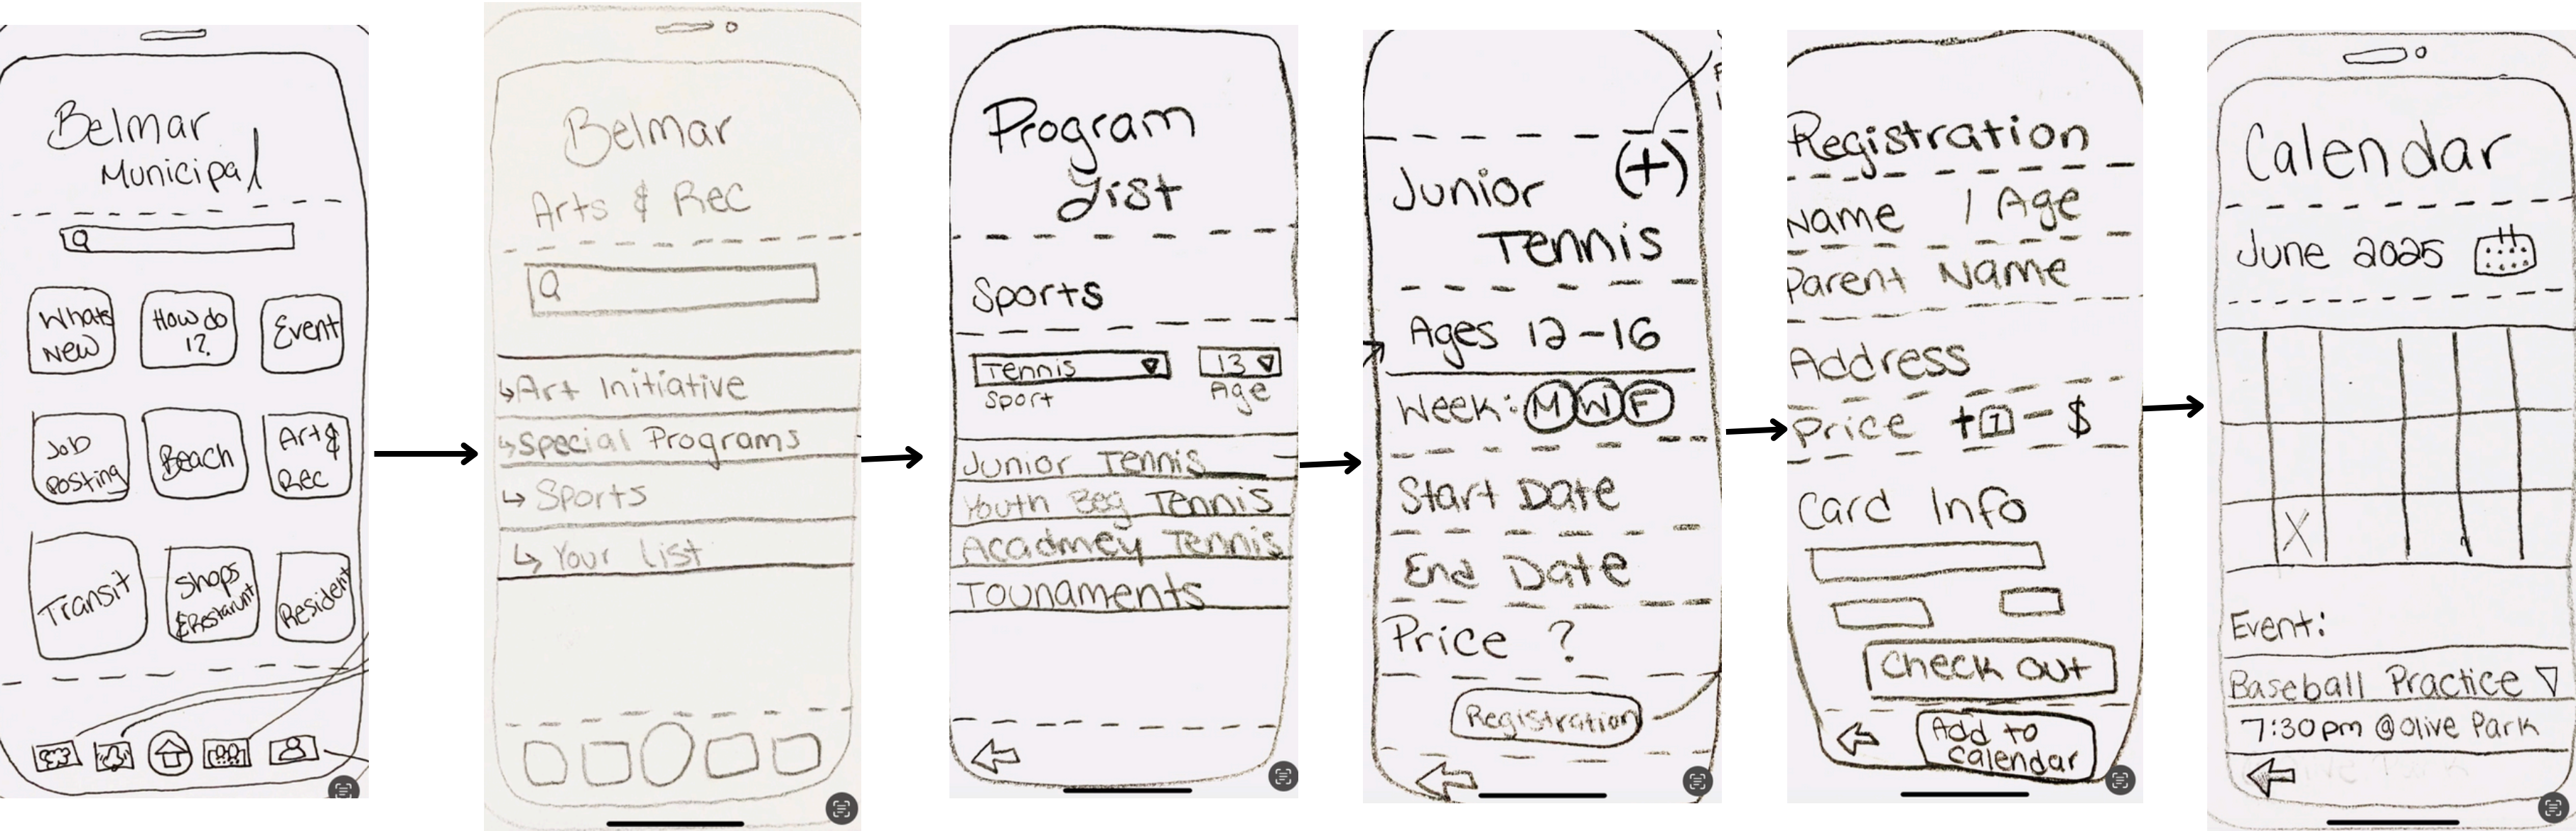 Belmar
Municipal
Whats
New
How do
I?
Event
Job
Posting
Beach
Art &
Rec
Transit
Shops
& Restarunt
Resident
Belmar
Arts & Rec
Art Initiative
Special Programs
Sports
Your List
Program
List
Sports
Tennis
13
Sport
Age
Junior Tennis
Youth Beg Tennis
Acadmey Tennis
Tounaments
(+)
Junior
Tennis
Ages 12-16
Week: M W F
Start Date
End Date
Price ?
Registration
Registration
Name / Age
Parent Name
Address
Price + 1 - $
Card Info
Check out
Add to
Calendar
Calendar
June 2025
X
Event:
Baseball Practice
7:30pm @ Olive Park